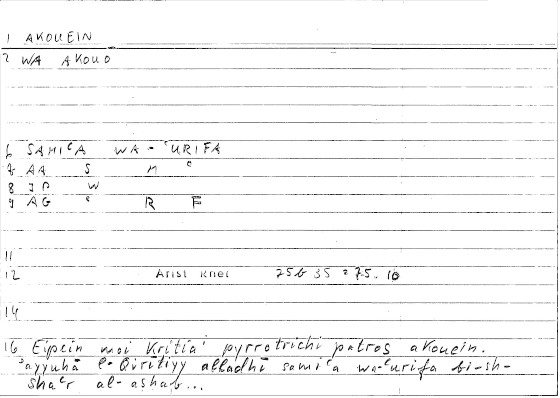 1 AKOUEIN
2 WA AKOUO
6 SAMIᶜA WA-ᶜURIFA
7 AA S M ᶜ
8 JP W
9 AG ᶜ R F
11
12 Arist Rhet 75b 35 = 75.10
14
16 Eipein moi Kritiai pyrrotrichi patros akouein.
ʾayyuhā l-Qirītiyy alladhī samiᶜa wa-ᶜurifa bi-sh-
shaᶜr al-ashab...